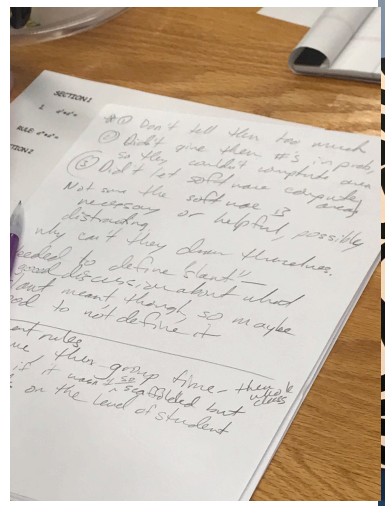 SECTION 1
1.
RULE
TION 2
① Don't tell them too much
② Didn't give them #'s in prob,
so they couldn't compute area
③ Didn't let software compute
Not sure the software is even
necessary or helpful, possibly
distracting
why can't they draw themselves.
eeded to define "slant" -
good discussion about what
ant meant though, so maybe
od to not define it
ent rules
me then group time - then whole class
if it wasn't so scaffolded but
on the level of student